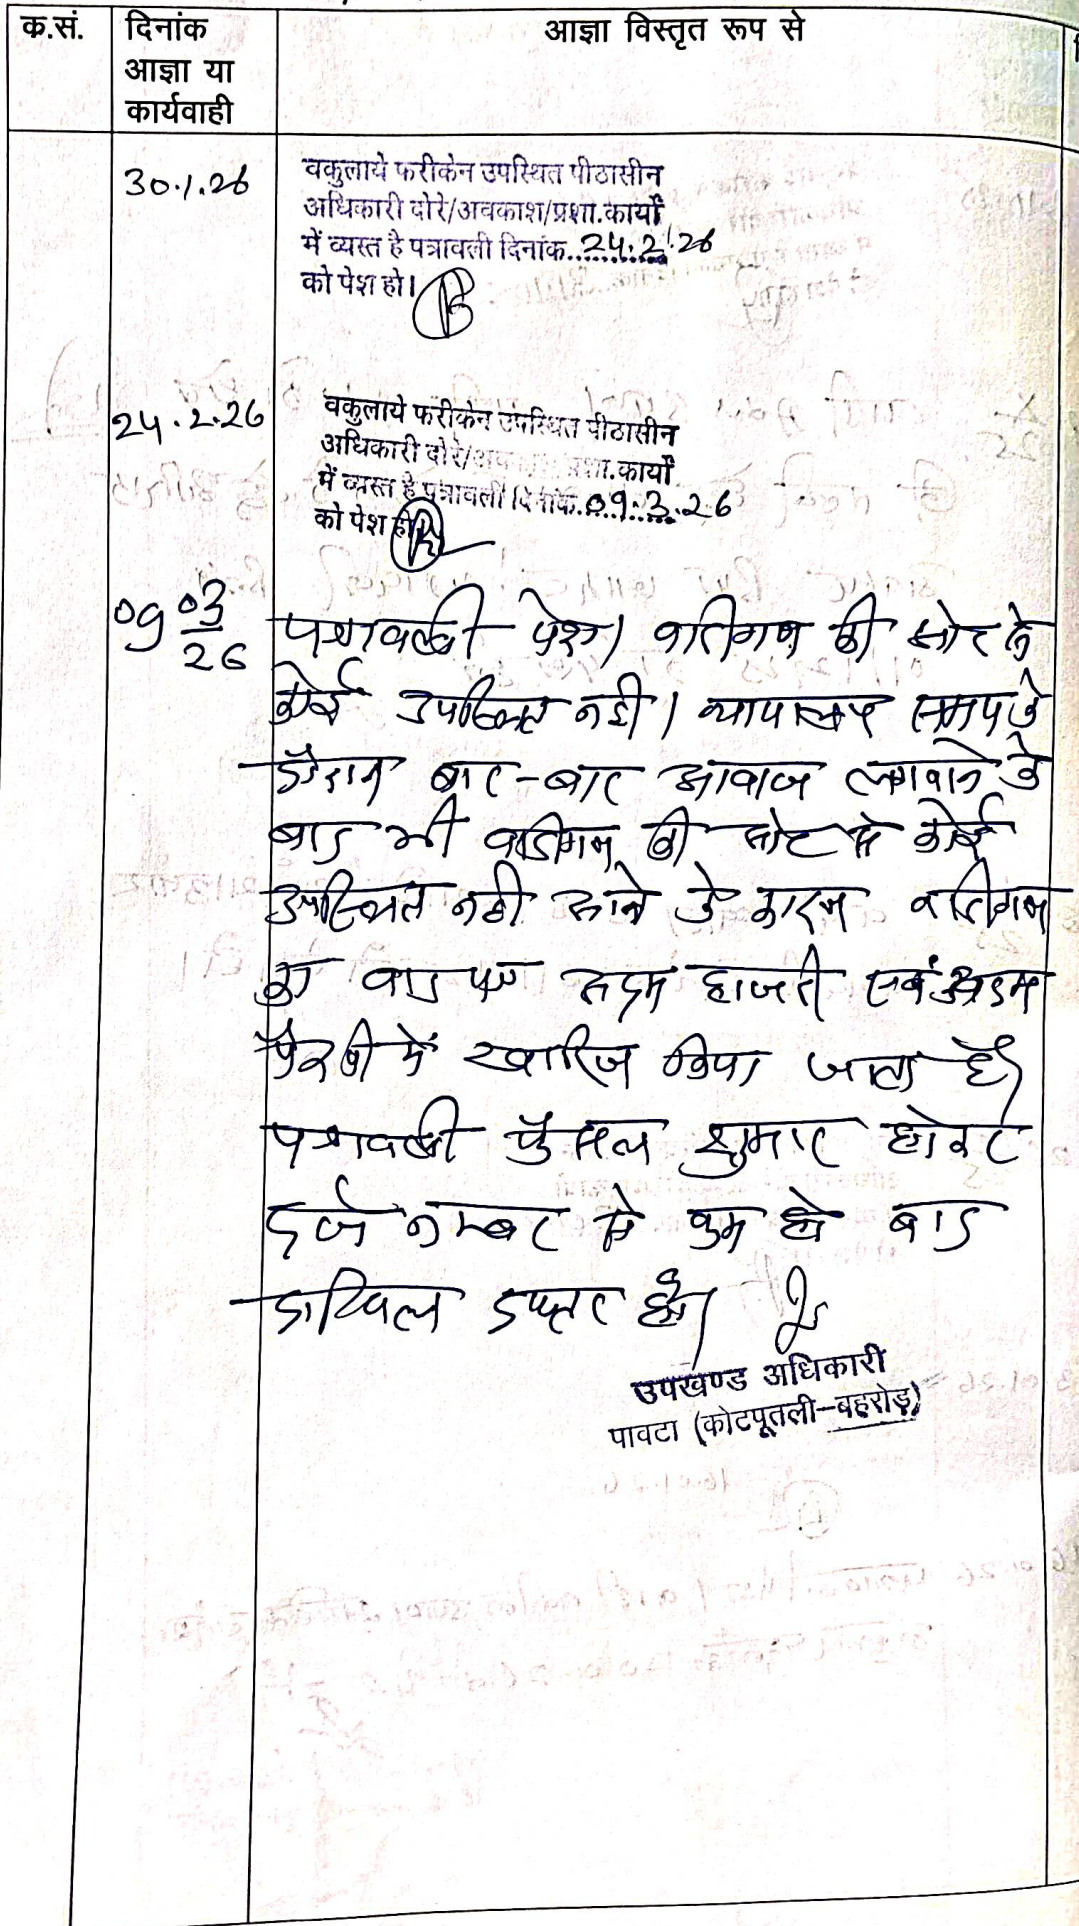 क.सं. दिनांक आज्ञा या कार्यवाही आज्ञा विस्तृत रूप से
30.1.26 वकुलाये फरीकेन उपस्थित पीठासीन
अधिकारी दोरे/अवकाश/प्रशा.कार्यों
में व्यस्त है पत्रावली दिनांक..24.2.26
को पेश हो।
24.2.26 वकुलाये फरीकेन उपस्थित पीठासीन
अधिकारी दोरे/अवकाश/प्रशा.कार्यों
में व्यस्त है पत्रावली दिनांक.09.3.26
को पेश हो
09 03/26 पत्रावली पेश। वादीगण की ओर से
कोई उपस्थित नही। न्यायालय समय के
दौरान बार-बार आवाज लगवाने के
बाद भी वादीगण की ओर से कोई
उपस्थित नही आने के कारण वादीगण
का वाद पत्र अदम हाजरी एवं अदम
पैरवी में खारिज किया जाता है।
पत्रावली फैसल शुमार होकर
दर्ज नम्बर से कम हो बाद
दाखिल दफ्तर हो।
उपखण्ड अधिकारी
पावटा (कोटपूतली-बहरोड़)